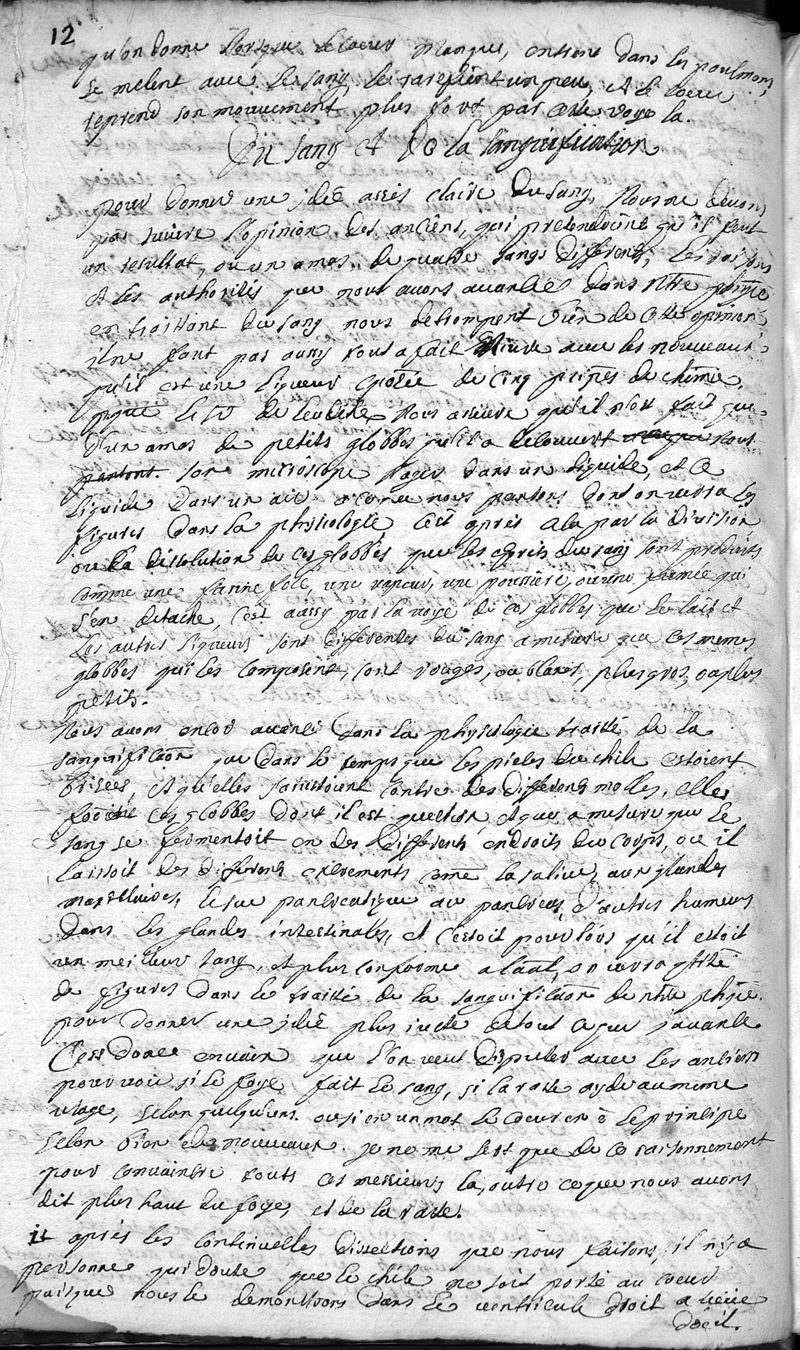 12
qu'on donne lorsque le coeur manque, entrent dans les poulmons,
se melent avec le sang le rarefient un peu, et le coeur
reprend son mouvement plus fort par cette voye la.
Du sang et de la sanguification
pour donner une idée assés claire du sang, nous ne devons
pas suivre l'opinion des anciens, qui pretendoient qu'il
un resultat, ou un amas de quattre sangs differents, les raisons
et les authorités que nous avons avancées dans nôtre
en traittant du sang nous detrompent bien de cette opinion
il ne faut pas aussy tout a fait avec les nouveaux
qu'il est une liqueur de cinq de chimie,
nous qu'il n'est fait que
d'un amas de petits globbes qu'il a decouvert
partout son microscope nager dans un liquide, et ce
liquide dans un air nous parlons dont on verra les
figures dans la phisiologie c'est aprés a la par la division
ou la dissolution de ces globbes que les esprits du sang sont produits
comme une farine fole, une vapeur, une poussiere, ou une fumée qui
s'en detache, c'est aussy par la voye de ces globbes que le lait et
les autres liqueurs sont differentes du sang a mesure que ces memes
globbes qui les composent, sont rouges, ou blancs, plus gros, ou plus
petits.
Nous avons encor avancé dans la phisiologie traitté de la
sanguificaõn que dans le temps que les du chile estoient
brisées, et qu'elles contre des differents molles, elles
ces globbes dont il est question, et que a mesure que le
sang se fermentoit en des differents endroits du corps, ou il
laissoit des differents excrements come la salive, aux glandes
maxillaires, le suc pancreatique au pancreas, d'autres humeurs
dans les glandes intestinalles, et c'estoit pour lors qu'il estoit
un meilleur sang, et plus conforme a on verra
de figures dans le traitté de la sanguificaõn de nôtre
pour donner une idée plus juste de tout ce que j'avance.
C'est donc envain que l'on veut disputer avec les anciens
pour voir si le foye fait le sang, si la ratte ayde au meme
usage, selon quelqu'uns. ou si en un mot le coeur en ê le principe
selon bien des nouveaux. je ne me sert que de ce raisonnement
pour convaintre touts ces messieurs la, outre ce que nous avons
dit plus haut du foye, et de la ratte.
it aprés les continuelles dissections que nous faisons, il n'y a
personne qui doute que le chile ne soit porté au coeur
puisque nous le demontrons dans le ventricule droit a veüe
d'oeil.